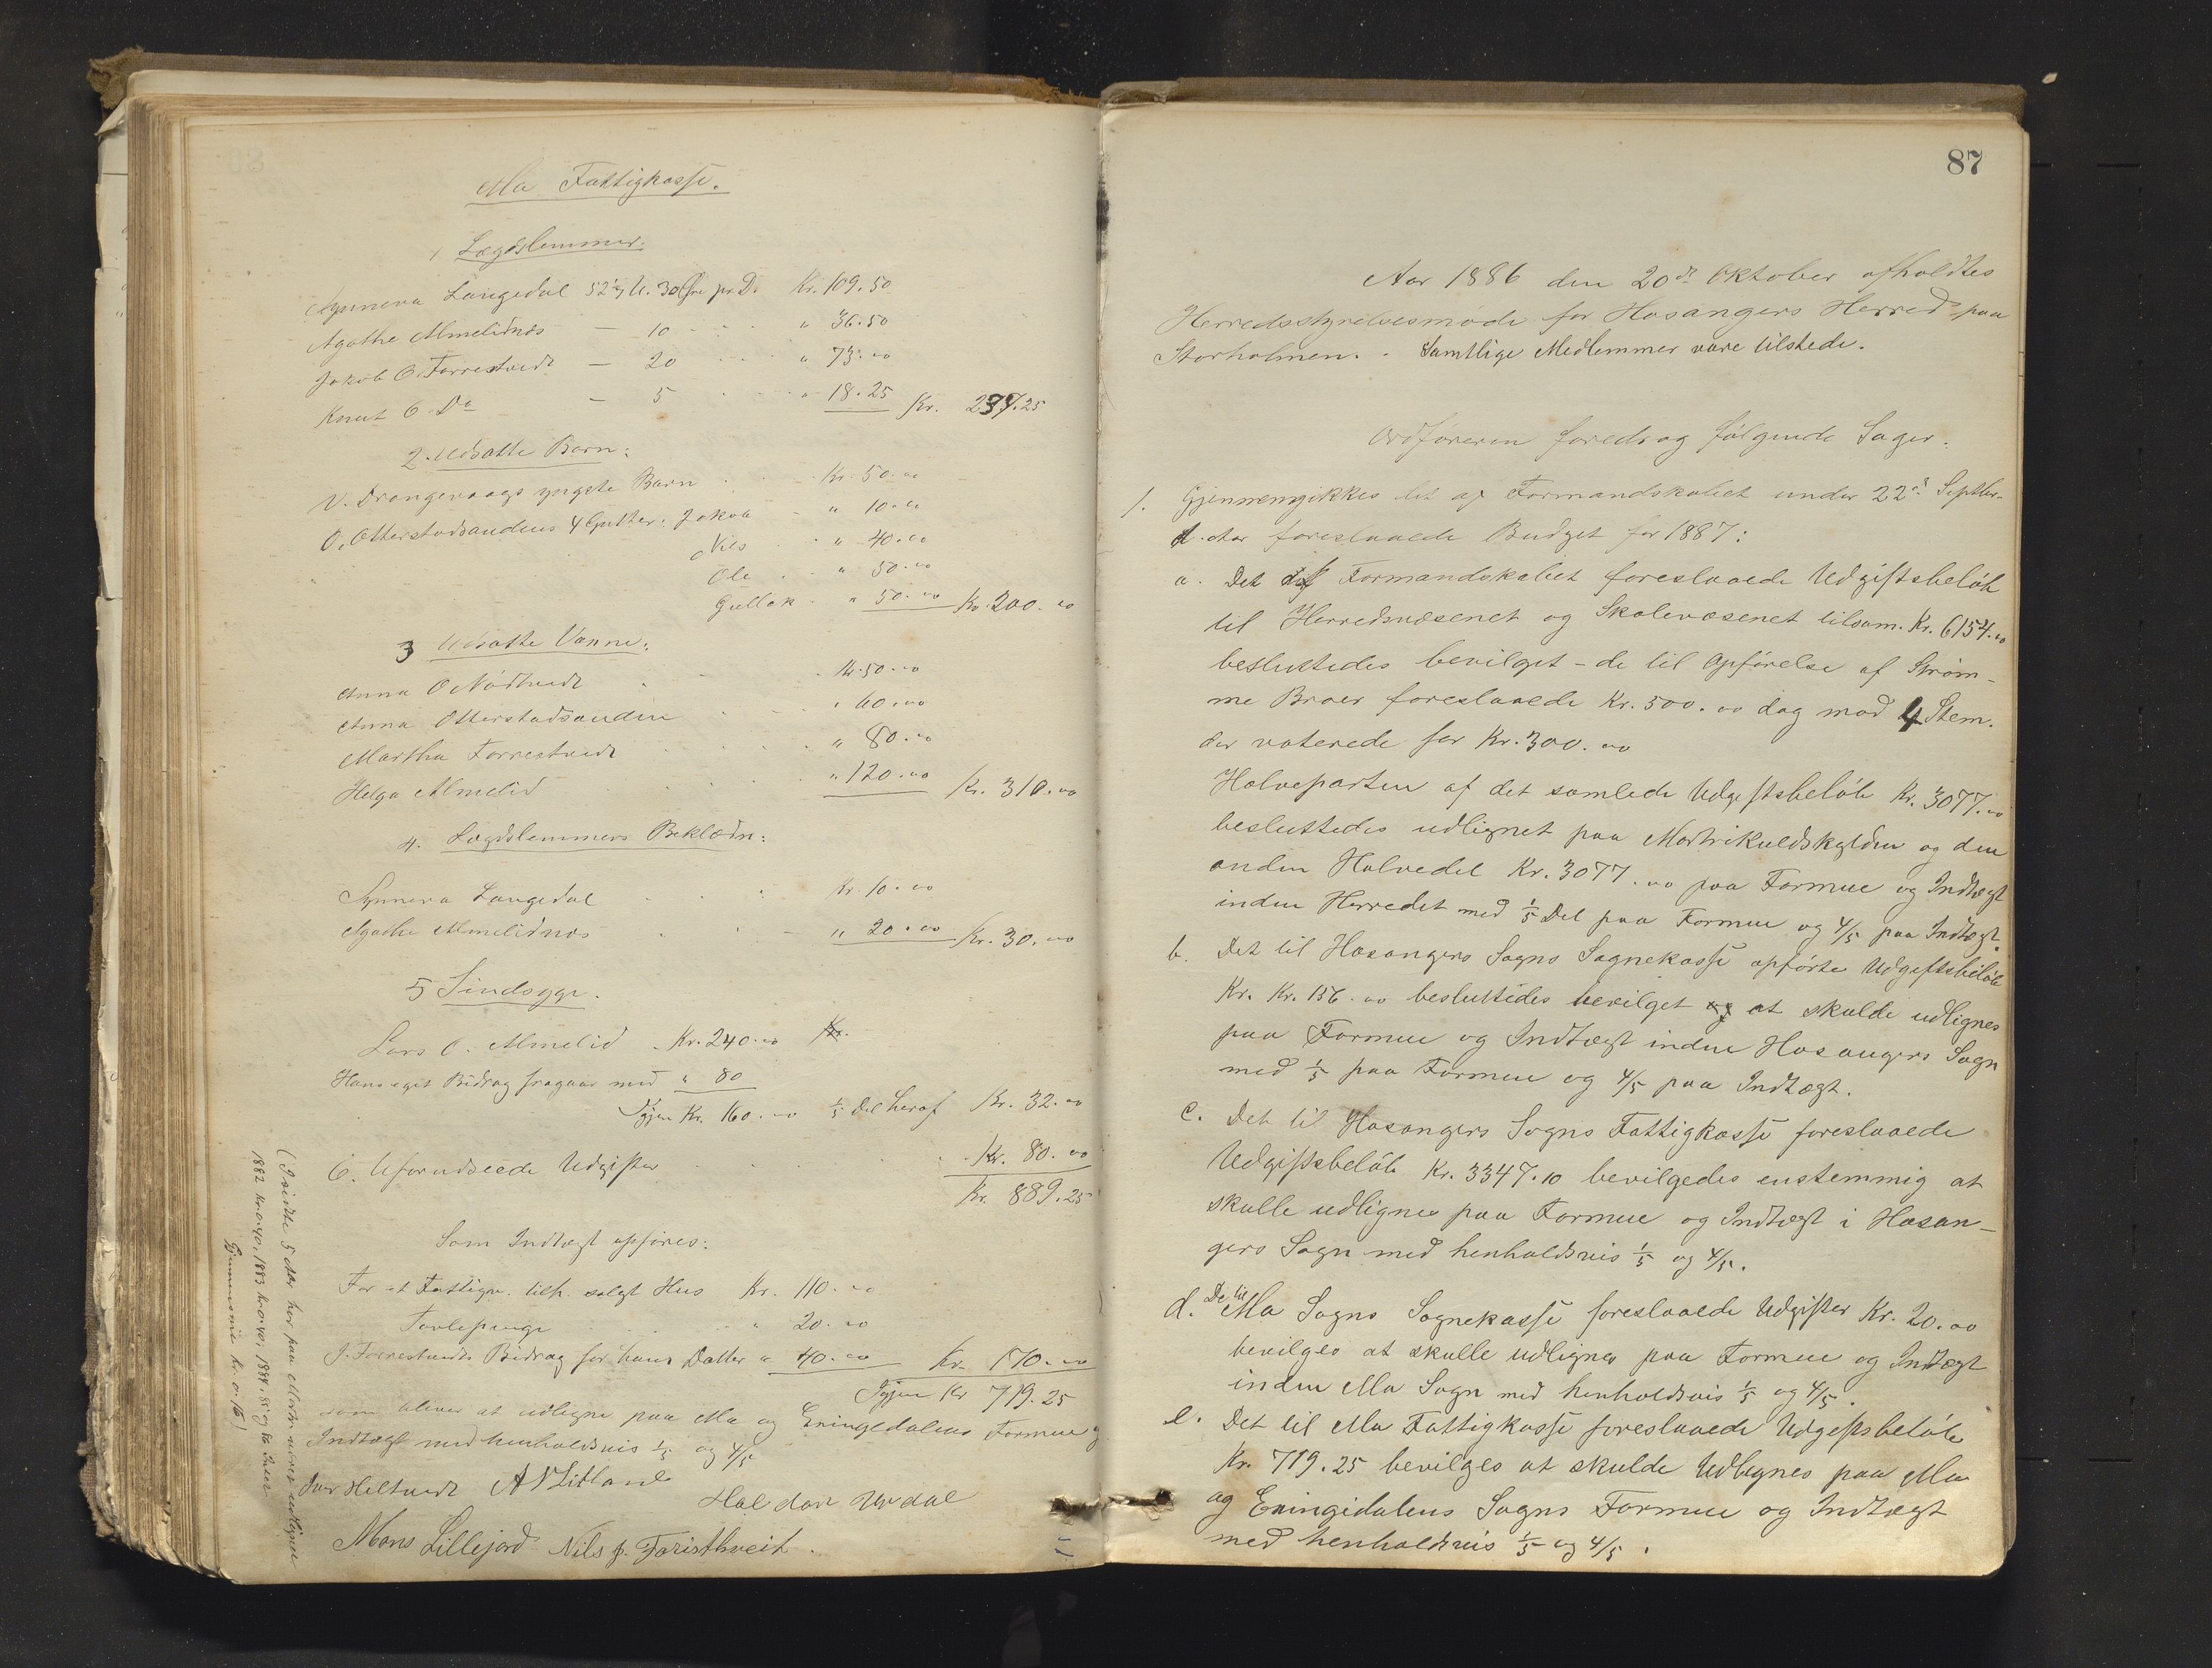 Mo Fattigkasse.
1 Lægdslemmer.
Synneva Langedal 52 3/7 U. 30 Øre pr D. Kr. 109.50
Agathe Almelidnæs — 10 " 36.50
Jakob O. Farrestvedt — 20 " 73.00
Knut O. Do — 5 " 18.25 Kr. 237.25
2. Udsatte Børn:
V. Drangevaags yngste Barn Kr. 50.00
O. Otterstadsandens 4 Gutter: Jakob " 10.00
Nils " 40.00
Ole " 50.00
Gullak " 50.00 Kr. 200.00
3 Udsatte Voxne:
Anna O Nødtvedt Kr. 50.00
Anna Otterstadsanden " 60.00
Martha Farrestvedt " 80.00
Helga Almelid " 120.00 Kr. 310.00
4. Lægdslemmers Beklædn:
Synneva Langedal Kr. 10.00
Agathe Almelidnæs " 20.00 Kr. 30.00
5 Sindsyge.
Lars O. Almelid Kr. 240.00 Kr.
Hans eget Bidrag fragaar med " 80
Igjen Kr. 160.00 1/5 Del heraf Kr. 32.00
6. Uforudseede Udgifter Kr. 80.00
Kr. 889.25
Som Indtægt opføres:
For et Fattigv. tilh. solgt Hus Kr. 110.00
Tavlepenge " 20.00
J. Farrestvedts Bidrag for hans Datter " 40.00 Kr. 170.00
Igjen Kr 719.25
som bliver at udligne paa Mo og Eningedalens Formue og
Indtægt med henholdsvis 1/5 og 4/5
Iver Heltvedt A N Litland
Haldor Urdal
Mons Lillejord Nils J. Faristhveit.
(I sidste 5 Aar har paa Matr. været udlignet
1882 Kr. 0.40, 1883 Kr. 0.40, 1884, 85 og 86 Intet
Gjennemsnit kr. 0.16)
87
Aar 1886 den 20de Oktober afholdtes
Herredsstyrelsesmøde for Hosangers Herred paa
Storholmen. Samtlige Medlemmer vare tilstede.
Ordføreren foredrog følgende Sager.
1. Gjennemgikkes det af Formandskabet under 22de Septbr.
d. Aar foreslaaede Budget for 1887:
a. Det af Formandskabet foreslaaede Udgiftsbeløb
til Herredsvæsenet og Skolevæsenet tilsam. Kr. 6154.00
besluttedes bevilget – de til Opførelse af Strøm-
me Broer foreslaaede Kr. 500.00 dog mod 4 Stem.
der voterede for Kr. 300.00
Halveparten af det samlede Udgiftsbeløb Kr. 3077.00
besluttedes udlignet paa Matrikulskylden og den
anden Halvedel Kr. 3077.00 paa Formue og Indtægt
inden Herredet med 1/5 Del paa Formue og 4/5 paa Indtægt.
b. Det til Hosangers Sogns Sognekasse opførte Udgiftsbeløb
Kr. Kr. 156.00 besluttedes bevilget og at skulde udlignes
paa Formue og Indtægt inden Hosangers Sogn
med 1/5 paa Formue og 4/5 paa Indtægt.
c. Det til Hosangers Sogns Fattigkasse foreslaaede
Udgiftsbeløb Kr. 3347.10 bevilgedes enstemmig at
skulle udlignes paa Formue og Indtægt i Hosan-
gers Sogn med henholdsvis 1/5 og 4/5.
d. De til Mo Sogns Sognekasse foreslaaede Udgifter Kr. 20.00
bevilges at skulle udlignes paa Formue og Indtægt
inden Mo Sogn med henholdsvis 1/5 og 4/5.
e. Det til Mo Fattigkasse foreslaaede Udgiftsbeløb
Kr. 719.25 bevilges at skulde Udlignes paa Mo
og Eningidalens Sogns Formue og Indtægt
med henholdsvis 1/5 og 4/5.